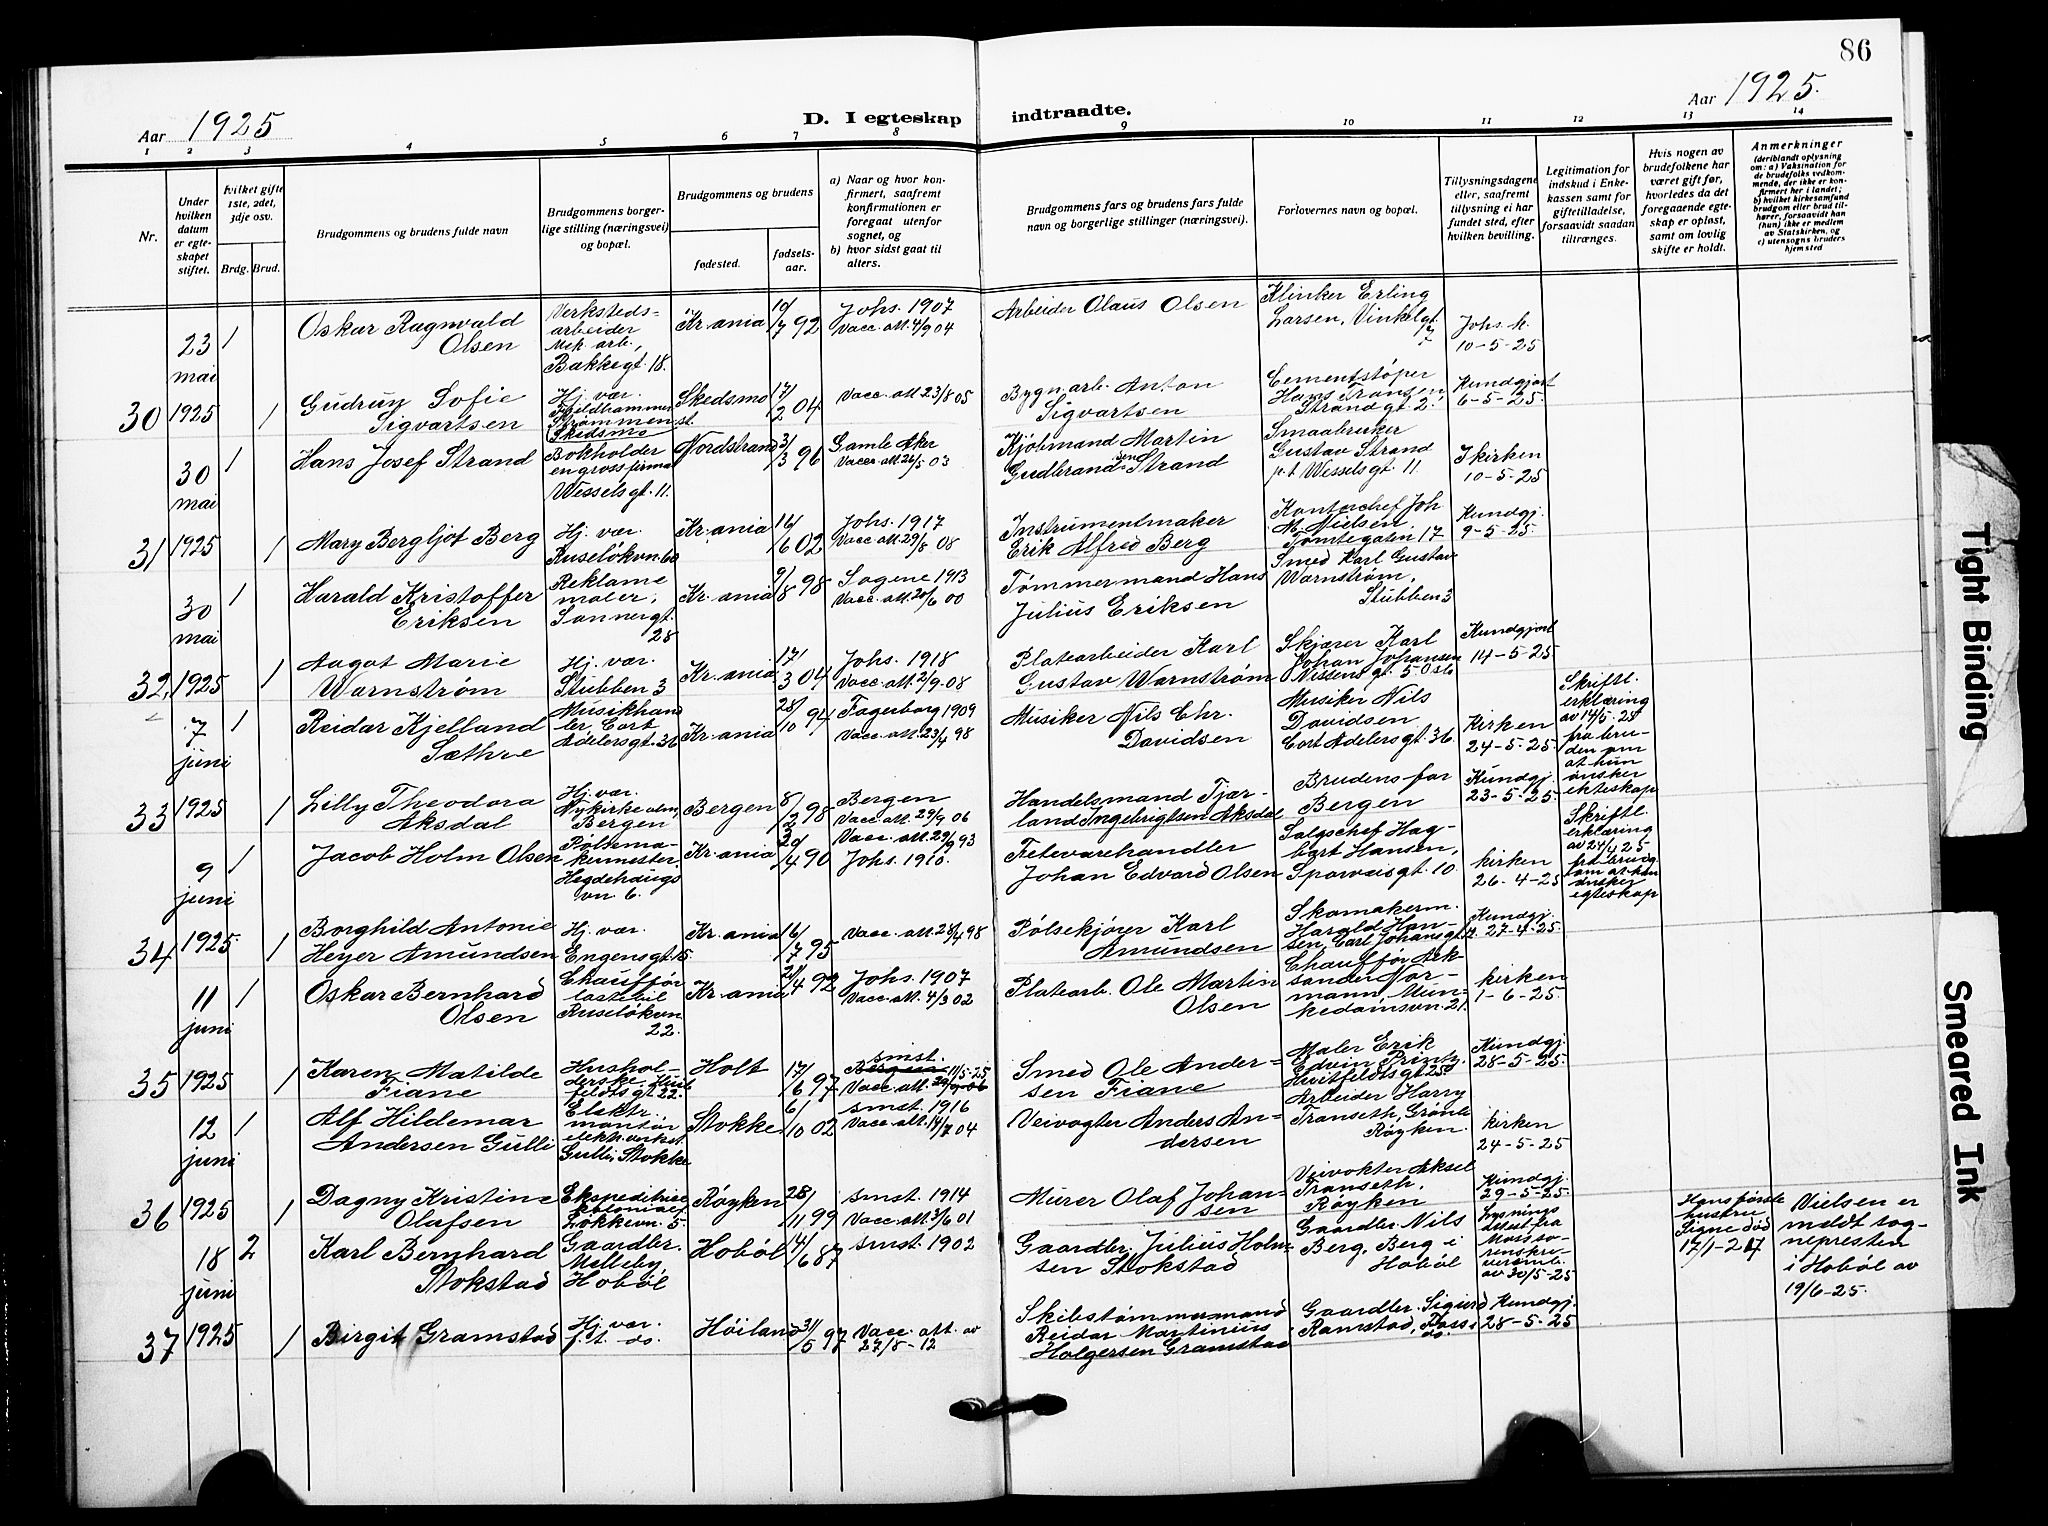 86
Aar 1925
D. I egteskap indtraadte.
Aar 1925.
1 2 3 4 5 6 7 8 9 10 11 12 13 14
Nr.
Under hvilken datum er egteskapet stiftet.
hvilket gifte 1ste, 2det, 3dje osv.
Brdg. Brud.
Brudgommens og brudens fulde navn
Brudgommens borgerlige stilling (næringsvei) og bopæl.
Brudgommens og brudens
fødested.
fødselsaar.
a) Naar og hvor konfirmert, saafremt konfirmationen er foregaat utenfor sognet, og
b) hvor sidst gaat til alters.
Brudgommens fars og brudens fars fulde navn og borgerlige stillinger (næringsvei).
Forlovernes navn og bopæl.
Tillysningsdagene eller, saafremt tillysning ei har fundet sted, efter hvilken bevilling.
Legitimation for indskud i Enkekassen samt for giftetilladelse, forsaavidt saadan tiltrænges.
Hvis nogen av brudefolkene har været gift før, hvorledes da det foregaaende egteskap er opløst, samt om lovlig skifte er holdt.
Anmerkninger
(deriblandt oplysning om: a) Vaksination for de brudefolks vedkommende, der ikke er konfirmert her i landet; b) hvilket kirkesamfund brudgom eller brud tilhører, forsaavidt han (hun) ikke er medlem av Statskirken, og c) utensogns bruders hjemsted
23 mai 1 Oskar Ragnvald Olsen
Verkstedsarbeider Mek. arb., Bakkegt. 18.
Kr.ania 10/7 92 Johs. 1907 Vacc. att. 4/9 04
Arbeider Olaus Olsen
Klinker Erling Larsen, Vinkelgt. 7
Johs. k. 10-5-25
30 1925 1 Gudrun Sofie Sigvartsen
Hj. vær. Strømmen st. Skedsmo
Skedsmo 17/2 04 Vacc. att 23/8 05
Bygn.arb. Anton Sigvartsen
Cementstøper Hans Fransen Strandgt 2.
Kundgjort 6-5-25.
30 mai 1 Hans Josef Strand
Bokholder engrosfirma Wesselsgt. 11.
Nordstrand 31/3 96 Gamle Aker Vacc. att 26/5 03
Kjøbmand Martin Gudbrandsen Strand
Smaabruker Gustav Strand p.t. Wesselsgt. 11
I kirken 10-5-25
31 1925 1 Mary Bergljot Berg
Hj. vær. Ruseløkvn. 60
Kr.ania 16/6 02 Johs. 1917 Vacc. att. 29/8 08
Instrumentmaker Erik Alfred Berg
Kontorchef Joh M. Nielsen. Tomtegaten 17
Kundgj. 9-5-25.
30 mai 1 Harald Kristoffer Eriksen
Reklamemaler, Sannergt. 28
Kr.ania 9/8 98 Sagene 1913 Vacc. att. 20/6 00
Tømmermand Hans Julius Eriksen
Smed Karl Gustav Warnstrøm, Stubben 3
32. 1925 1 Aagot Marie Warnstrøm
Hj. vær. Stubben 3
Kr.ania 17/3 04 Johs. 1918 Vacc. att. 2/9-08
Platearbeider Karl Gustav Warnstrøm
Skjærer Karl Johan Johansen Nissens gt. 5 Oslo
Kundgjort 14-5-25
7 juni 1 Reidar Kjelland Sæthre
Musikhandler Cort Adelersgt. 36
Kr.ania 28/10 94 Fagerborg 1909 Vacc. att. 23/4 98
Musiker Nils Chr. Davidsen
Musiker Nils Davidsen Cort Adelersgt. 36
Kirken 24-5-25.
Skriftl. erklæring av 14/5-25 fra bruden om at hun ønsker ekteskap
33 1925 1 Lilly Theodora Aksdal
Hj. vær. Nykirkealm. Bergen
Bergen 8/2 98 Bergen Vacc. att. 29/9 06
Handelsmand Fjærland Ingebrigtsen Aksdal
Brudens far Bergen
Kundgj. 23-5-25.
9 juni 1 Jacob Holm Olsen
Pølsemakermester, Hegdehaugsvn. 6.
Kr.ania 30/4 90 Vacc. att 29/9 93 Johs. 1910.
Fetevarehandler Johan Edvard Olsen
Salgschef Hagbart Hansen, Sporveisgt. 10.
kirken 26-4-25
Skriftl. erklæring av 24/4 25 fra brudg. om at han ønsker egteskap
34 1925. 1 Borghild Antonie Heyer Amundsen
Hj. vær. Engensgt. 15.
Kr.ania 16/7 95 Vacc. att. 28/4 98
Pølsekjører Karl Amundsen
Skomakerm. Harald Hansen, Carl Johansgt.
Kundgj. 27-4-25.
11 juni 1 Oskar Bernhard Olsen
Chauffør lastebil Ruseløkvn 22.
Kr.ania 21/4 92 Johs. 1907 Vacc. att. 4/3 02
Platearb. Ole Martin Olsen
Chauffør Aksander Normann, Munkedamsvn. 21.
kirken 1-6-25.
35 1925 1 Karen Matilde Fiane
Husholderske. Huitfeldtsgt. 22.
Holt 17/6 97 smst. 11/5-25 Vacc. att. 
Smed Ole Andersen Fiane
Maler Erik Edvin Printz. Huitfeldtsgt 25
Kundgj. 28-5-25.
12 juni 1 Alf Hildemar Andersen Gulli
Elektr. montør elekt.verket. Gulli, Stokke
Stokke 6/10 02 smst. 1916 Vacc. att. 14/7 04
Veivogter Anders Andersen
Arbeider Harry Transeth, Grønli Røyken.
kirken 24-5-25
36 1925 1 Dagny Kristine Olafsen
Ekspeditrice Løkkevn. 5
Røyken 28/11 99 smst. 1914 Vacc. att. 3/6 01
Murer Olaf Johansen
Veivokter Aksel Transeth, Røyken
Kundgj. 29-5-25.
18 juni 2 Karl Bernhard Stokstad
Gaardbr. Melleby, Hobøl
Hobøl 14/6 87 smst. 1902
Gaardbr. Julius Holmsen Stokstad
Gaardbr. Nils Berg, Berg i Hobøl
Lysningsattest fra Moss sorenskriverembe. av 30/5-25
Hans første hustru Signe død 17/1-24
Nielsen er meldt sognepresten i Hobøl av 19/6-25.
37 1925 1 Birgit Gramstad
Hj. vær. f.t. do.
Høiland 31/5 97 Vacc. att. av 27/8-12
Skibstømmermand Reidar Martinius Holgersen Gramstad
Gaardbr. Sigurd Ramstad, do.
Kundgj. 28-5-25
Tight Binding
Smeared Ink